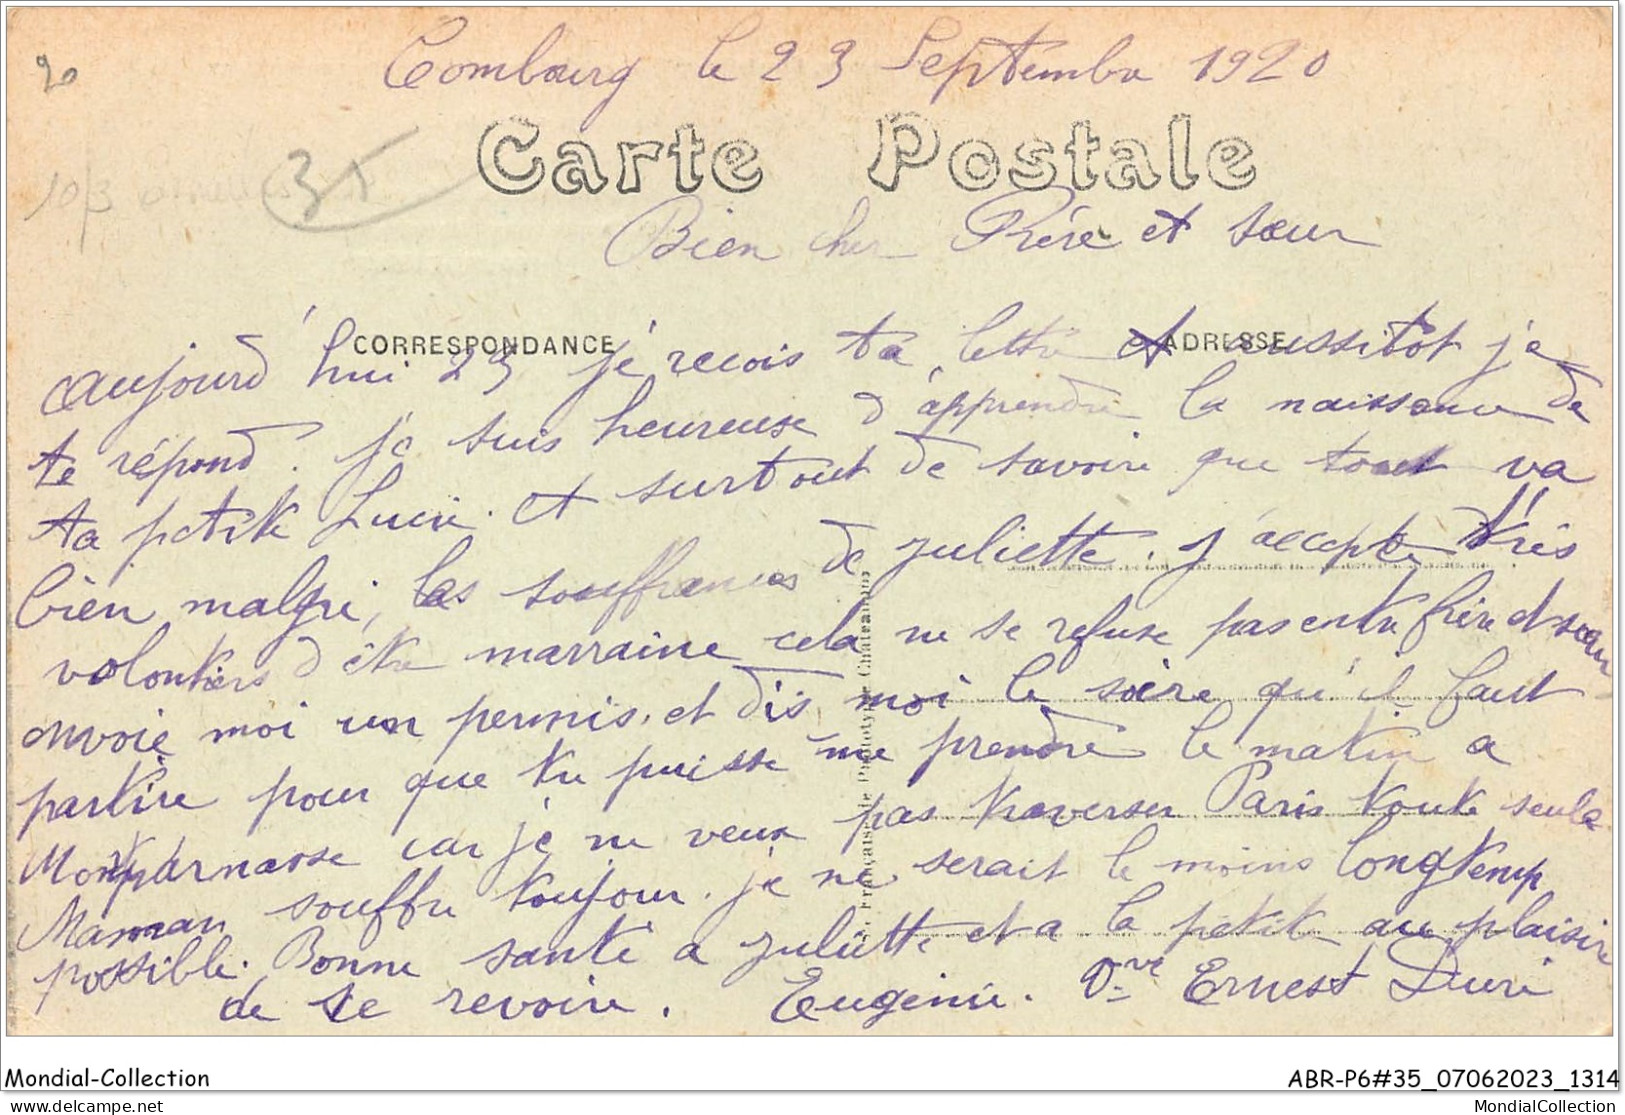 20
Combourg le 23 Septembre 1920
Carte Postale
35
10/3
Bien cher Frère et sœur
CORRESPONDANCE
ADRESSE
aujourd'hui 23 je recois ta lettre et aussitôt je
te répond. je suis heureuse d'apprendre la naissance de
ta petite Lucie. et surtout de savoire que tout va
bien malgré, les souffrances de juliette. j'accepte très
volontiers d'être marraine cela ne se refuse pas entre frère et sœur
envoie moi un permis. et dis moi le soire qu'il faut
partire pour que tu puisse me prendre le matin a
Montparnasse car je ne veux pas traverser Paris toute seule
Maman souffre toujour. je ne serait le moins longtemp
possible. Bonne santé a juliette et a la petite au plaisire
de te revoire. Eugénie. Vve Ernest Duré
Française Phototypie Chatraignon
Mondial-Collection
ABR-P6#35_07062023_1314
delcampe.net
MondialCollection